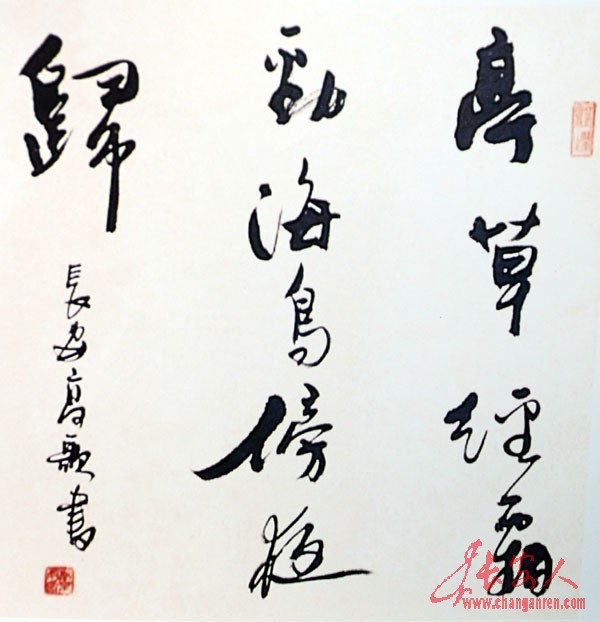 亭草經霜
勁海鳥傍
歸
長安高歌書
长安人
www.changanren.com